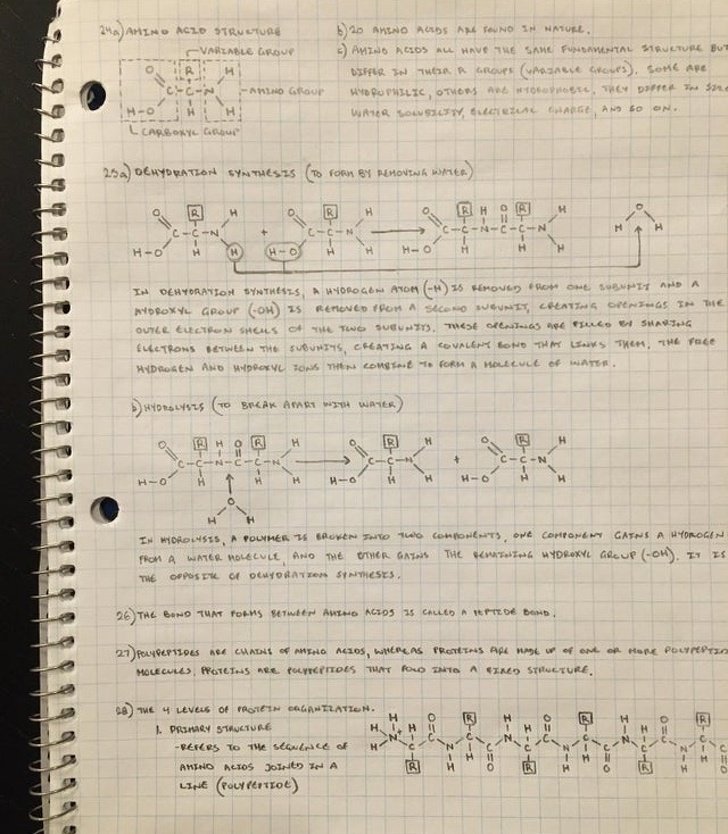 24a) AMINO ACID STRUCTURE
VARIABLE GROUP
AMINO GROUP
CARBOXYL GROUP
b) 20 AMINO ACIDS ARE FOUND IN NATURE.
c) AMINO ACIDS ALL HAVE THE SAME FUNDAMENTAL STRUCTURE BUT
DIFFER IN THEIR R GROUPS (VARIABLE GROUPS). SOME ARE
HYDROPHILIC, OTHERS ARE HYDROPHOBIC, THEY DIFFER IN SIZE
WATER SOLUBILITY, ELECTRICAL CHARGE, AND SO ON.
25a) DEHYDRATION SYNTHESIS (TO FORM BY REMOVING WATER)
IN DEHYDRATION SYNTHESIS, A HYDROGEN ATOM (-H) IS REMOVED FROM ONE SUBUNIT AND A
HYDROXYL GROUP (-OH) IS REMOVED FROM A SECOND SUBUNIT, CREATING OPENINGS IN THE
OUTER ELECTRON SHELLS OF THE TWO SUBUNITS. THESE OPENINGS ARE FILLED BY SHARING
ELECTRONS BETWEEN THE SUBUNITS, CREATING A COVALENT BOND THAT LINKS THEM, THE FREE
HYDROGEN AND HYDROXYL IONS THEN COMBINE TO FORM A MOLECULE OF WATER.
b) HYDROLYSIS (TO BREAK APART WITH WATER)
IN HYDROLYSIS, A POLYMER IS BROKEN INTO TWO COMPONENTS, ONE COMPONENT GAINS A HYDROGEN
FROM A WATER MOLECULE, AND THE OTHER GAINS THE REMAINING HYDROXYL GROUP (-OH). IT IS
THE OPPOSITE OF DEHYDRATION SYNTHESIS.
26) THE BOND THAT FORMS BETWEEN AMINO ACIDS IS CALLED A PEPTIDE BOND.
27) POLYPEPTIDES ARE CHAINS OF AMINO ACIDS, WHEREAS PROTEINS ARE MADE UP OF ONE OR MORE POLYPEPTID
MOLECULES, PROTEINS ARE POLYPEPTIDES THAT FOLD INTO A FIXED STRUCTURE.
28) THE 4 LEVELS OF PROTEIN ORGANIZATION.
1. PRIMARY STRUCTURE
-REFERS TO THE SEQUENCE OF
AMINO ACIDS JOINED IN A
LINE (POLYPEPTIDE)